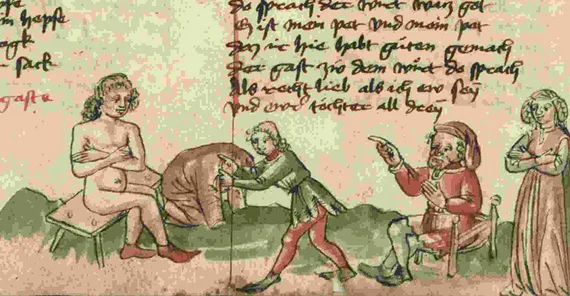 m hepfe
sack
gaste
do sprach der wirt warz got
Es ist mein pet vnd mein pot
daz ir hie habt guten gemach
der gast zw dem wirt do sprach
Als recht lieb als ich ew sey
vnd ewr tochter all drey